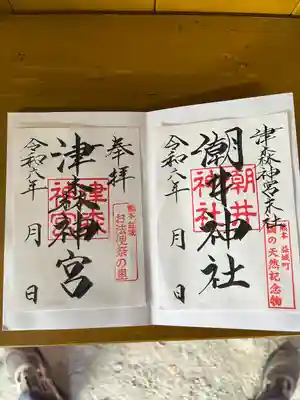 津森神宮末社
潮井神社
令和六年 月 日
潮井
神社
熊本 益城町
国の天然記念物
奉拝
津森神宮
令和六年 月 日
津森
神宮
熊本 益城
お法使祭の里